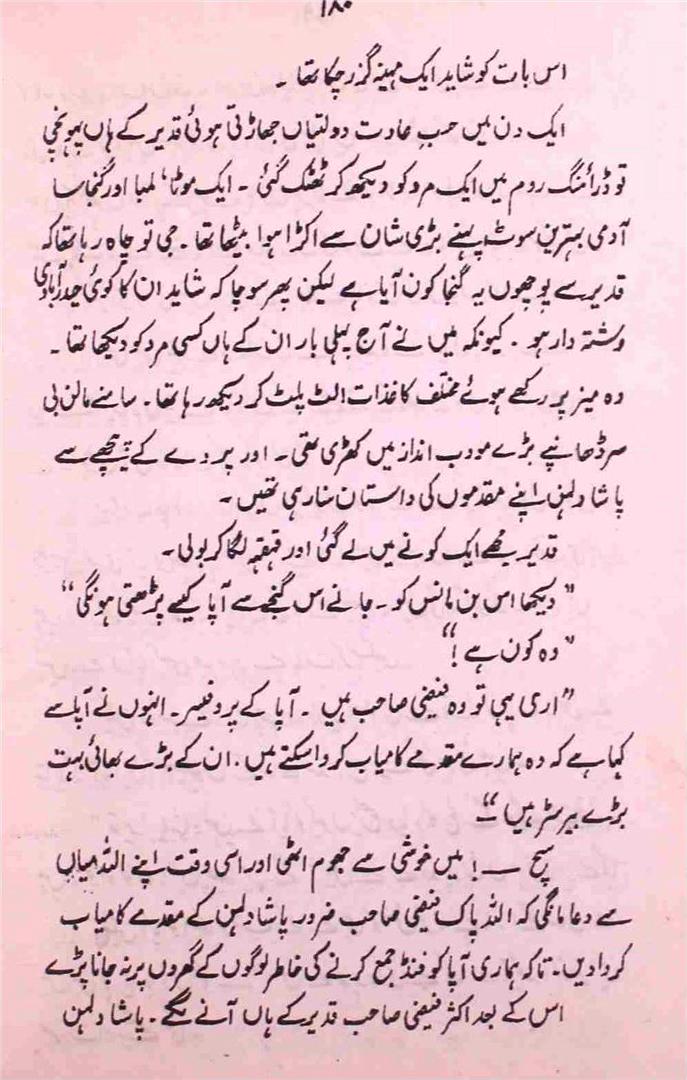 ۱۸۰
اس بات کو شاید ایک مہینہ گزر چکا تھا ۔
ایک دن میں حسبِ عادت دولتیاں جھاڑتی ہوئی قدیر کے ہاں پہونچی
تو ڈرائنگ روم میں ایک مرد کو دیکھ کر ٹھٹک گئی ۔ ایک موٹا، لمبا اور گنجا سا
آدمی بہترین سوٹ پہنے بڑی شان سے اکڑا ہوا بیٹھا تھا ۔ جی تو چاہ رہا تھا کہ
قدیر سے پوچھوں یہ گنجا کون آیا ہے لیکن پھر سوچا کہ شاید ان کا کوئی حیدرآبادی
رشتہ دار ہو ۔ کیونکہ میں نے آج پہلی بار ان کے ہاں کسی مرد کو دیکھا تھا ۔
وہ میز پر رکھے ہوئے مختلف کاغذات الٹ پلٹ کر دیکھ رہا تھا ۔ سامنے مالن بی
سر ڈھانپے بڑے مودب انداز میں کھڑی تھی ۔ اور پردے کے پیچھے سے
پاشا دلہن اپنے مقدموں کی داستان سنا رہی تھیں ۔
قدیر مجھے ایک کونے میں لے گئی اور قہقہہ لگا کر بولی ۔
” دیکھا اس بن مانس کو ۔ جانے اس گنجے سے آپا کیسے پڑھتی ہونگی “
” وہ کون ہے ! “
” اری یہی تو وہ فیضی صاحب ہیں ۔ آپا کے پروفیسر ۔ انہوں نے آپا سے
کہا ہے کہ وہ ہمارے مقدمے کامیاب کروا سکتے ہیں ۔ ان کے بڑے بھائی بہت
بڑے بیرسٹر ہیں “
سچ ــــ ! میں خوشی سے جھوم اٹھی اور اسی وقت اپنے اللہ میاں
سے دعا مانگی کہ اللہ پاک فیضی صاحب ضرور پاشا دلہن کے مقدمے کامیاب
کروا دیں ۔ تاکہ ہماری آپا کو فنڈ جمع کرنے کی خاطر لوگوں کے گھروں پر نہ جانا پڑے
اس کے بعد اکثر فیضی صاحب قدیر کے ہاں آنے لگے ۔ پاشا دلہن